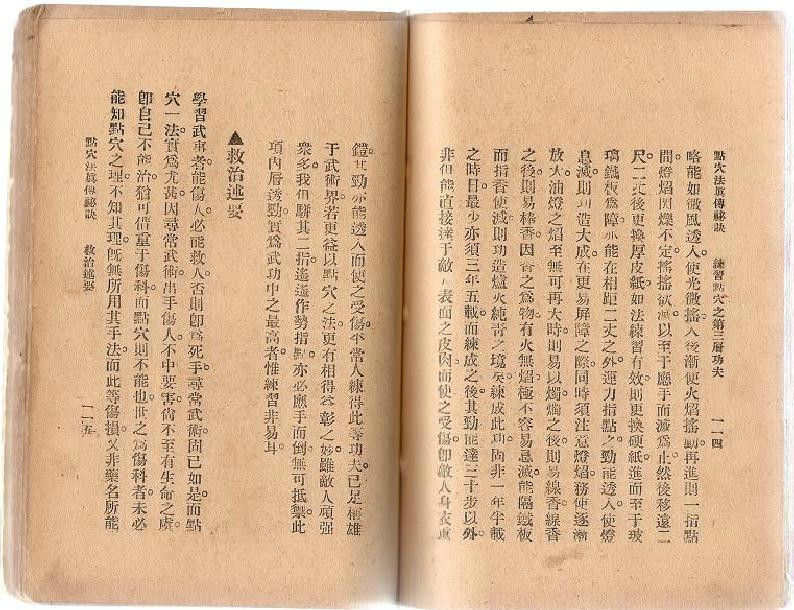 點穴法眞傳秘訣　練習點穴之第三層功夫　一一四
略能如微風透入使光微搖入後漸便火焰搖動再進則一指點
間燈焰閃爍不定搖搖欲滅以至于應手而滅爲止然後移遠二
尺二丈後更換厚皮紙如法練習有效則更換硬紙進而至于玻
璃鐵板爲障亦能在相距二丈之外運力指點之勁能透入使燈
息滅則可造大成在更易屏障之際同時須注意燈焰務使逐漸
放大油燈之焰至無可再大時則易以燭燭之後則易線香線香
之後則易棒香因香之爲物有火無焰極不容易息滅能隔鐵板
而指香使滅則功造爐火純青之境矣練成此功固非一年半載
之時日最少亦須三年五載而練成之後其勁能達三十步以外
非但能直接達于敵人表面之皮肉而使之受傷卽敵人身衣重
鎧其勁亦能透入而使之受傷平常人練得此等功夫已足稱雄
于武術界若更益以點穴之法更有相得益彰之妙雖敵人頑强
衆多我但駢其二指遙遙作勢指點亦必應手而倒無可抵禦此
項內層透勁實爲武功中之最高者惟練習非易耳
▲救治述要
學習武事者能傷人必能救人否則卽爲死手尋常武術固已如是而點
穴一法實爲尤甚因尋常武術出手傷人不中要害尙不至有生命之虞
卽自己不能治猶可借重于傷科而點穴則不能也世之爲傷科者未必
能知點穴之理不知其理旣無所用其手法而此等傷損又非藥名所能
點穴法眞傳秘訣　救治述要　一一五